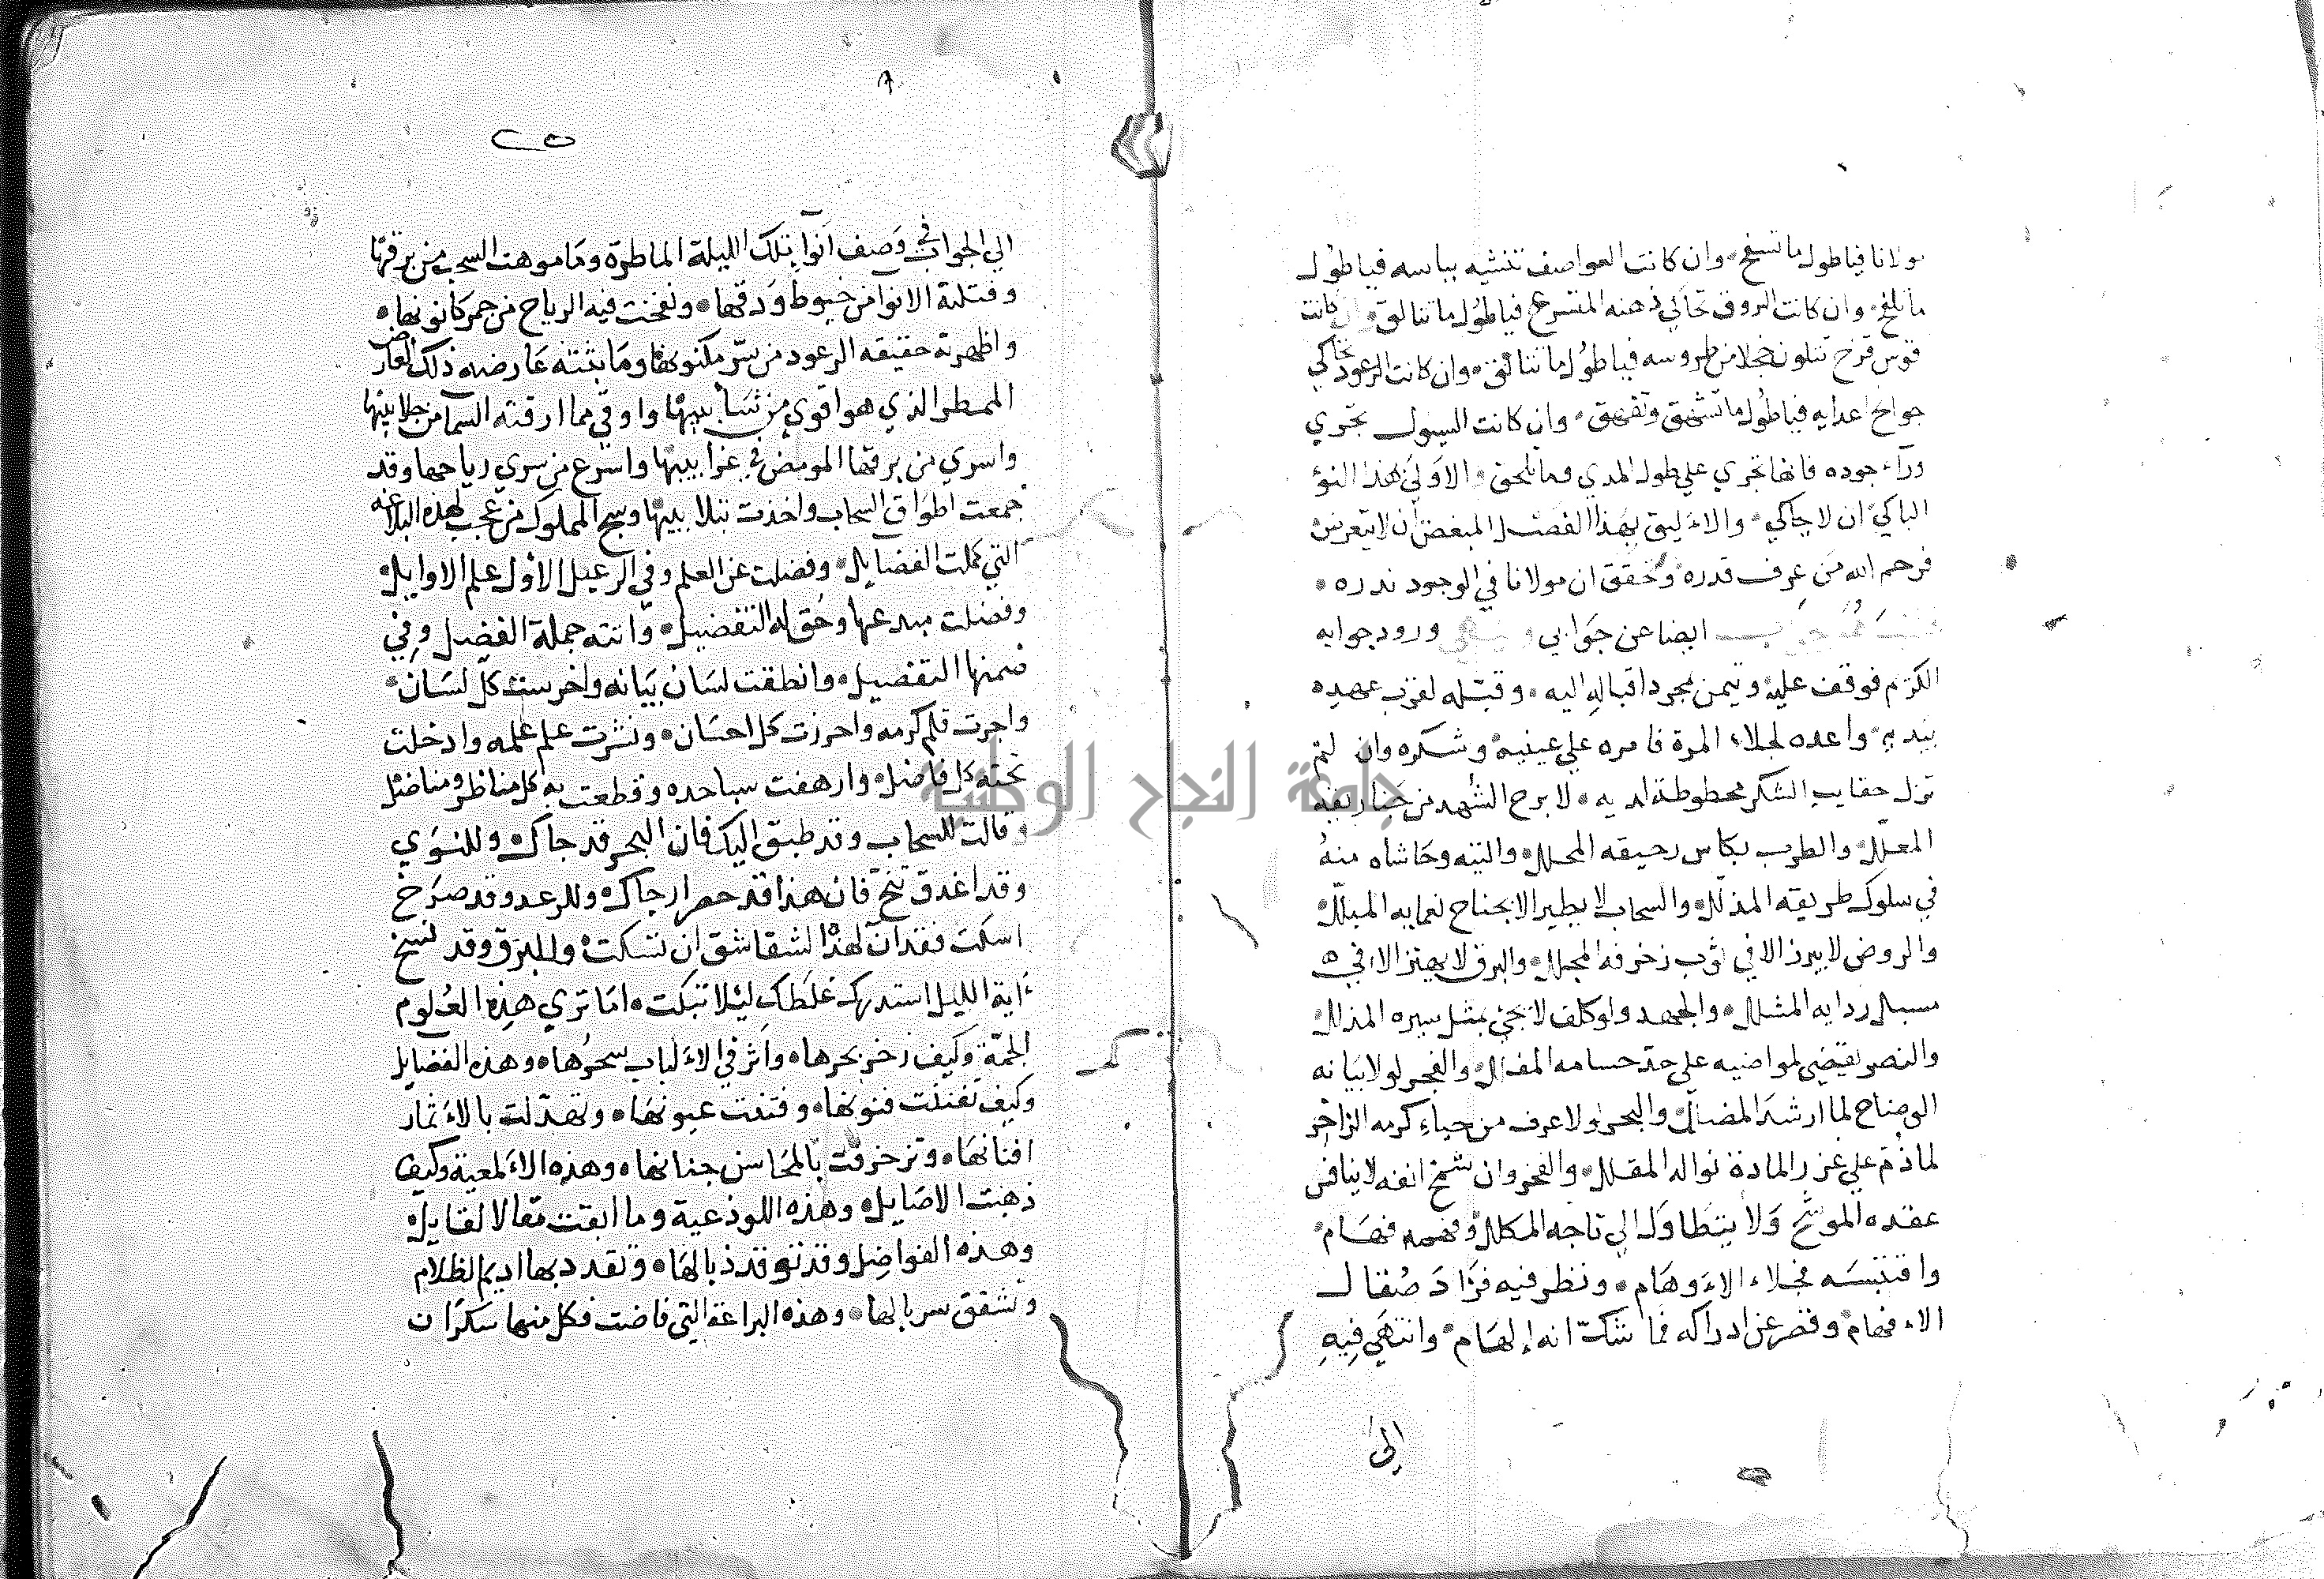 مولانا فياطول ما تسفح وان كانت العواصف تنشيه بباسه فياطول
ما تلفح وان كانت البروق تحاكي ذهنه المتسرع فياطول ما تتالق وان كانت
قوس قزح تتلون خجلا من طروسه فياطول ما تتانق وان كانت الرعود تحاكي
جوانح اعدايه فياطول ما تشهق وتفهق وان كانت السيول تجري
ورآء جوده فانها تجري علي طول المدي وما تلحق والاولي لهذا النؤ
الباكي ان لا يحاكي والاليق بهذا الفصل المبغض أن لا يتعرض
فرحم الله من عرف قدره وتحقق ان مولانا في الوجود ندره
ايضا عن جوابي ورود جوابه
الكريم فوقف عليه وتيمن بمجرد اقباله اليه وقبله لقرب عهده
بيديه واعده لجلاء المرة فامره علي عينيه وشكره وان لم
تزل حقايب الشكر محطوطة لديه لا برح الشهد من جنا ريقه
المعلل والطرب بكاس رحيقه المحلل والتيه وحاشاه منه
في سلوك طريقه المذلل والسحاب لا يطير الا بجناح نعمايه المبلل
والروض لا يبرز الا في ثوب زخرفه المجلل والبرق لا يهتز الا في
مسبل ردايه المشلل والجهد ولو كلف لا يجئ بمثل سيره المذلل
والنصر يقضي لمواضيه علي حد حسامه المفلل والفجر لولا بيانه
الوضاح لما ارشد المضلل والبحر لولا عرف من حباء كرمه الزاخر
لما ذم علي غزر المادة نواله المقلل والفخر وان شمخ انفه لا ينافس
عقده الموشح ولا يتطاول الي تاجه المكلل وفهمه فهام
واقتبسه فجلاء الاوهام ونظر فيه فزاد صقال
الافهام وقصر عن ادراكه فما شك انه إلهام وانتهي فيه
الي
٢٥
الي الجواب في وصف انوآ تلك الليلة الماطرة وما موهت السحب من برقها
وفتلته الانوا من خيوط ودقها ونفخت فيه الرياح من جمر كانونها
واظهرته حقيقه الرعود من سر مكنونها وما بثته عارضه ذلك العارض
الممطر الذي هو اقوي من شآبيبها واوقي مما ارقته السما من جلابيبها
واسري من برقها المومض في غرابيبها واسرع من سري رياحها وقد
جمعت اطواق السحاب واخذت بتلابيبها وسبح المملوك من عجب لهذه البلاغه
التي كملت الفضايل وفضلت عن العلم وفي الرعيل الأول علم الاوايل
وفضلت مبدعها وحق له التفضيل واتته جملة الفضل وفي
ضمنها التفصيل وانطقت لسان بيانه واخرست كل لسان
واجرت قلم كرمه واحرزت كل احسان ونشرت علم علمه وادخلت
تحته كل فاضل وارهفت سباحده وقطعت به كل مناظر ومناضل
وقالت للسحاب وقد طبق اليك فان البحر قد جاك وللنوي
وقد اغدق تنح فان هذا قد حصر ارجاك وللرعد وقد صرخ
اسكت فقد آن لهذا الشقاشق ان تسكت وللبرق وقد نسخ
ءاية الليل استدرك غلطك ليلا تبكت اما تري هذه العلوم
الجمة وكيف زخر بحرها واثر في الالباب سحرها وهذه الفضايل
وكيف تفننت فنونها وفتنت عيونها وتهدلت بالاثمار
افنانها وتزخرفت بالمحاسن جنانها وهذه الالمعية وكيف
ذهبت الاصايل وهذه اللوذعية وما ابقت مقالا لقايل
وهذه الفواضل وقد توقد ذبالها وتقدد بها اديم الظلام
وتشقق سربالها وهذه البراعة التي فاضت فكل منها سكران
جامعة النجاح الوطنية